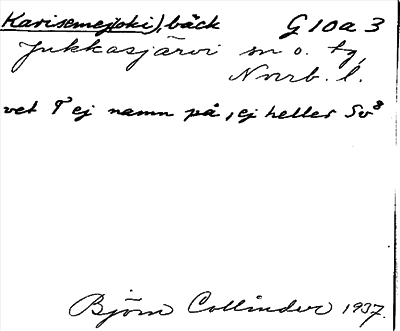 Karisemejjoki), bäck G 10 a 3
Jukkasjärvi sn o. tg,
Norrb. l.
vet T⁸ ej namn på, ej heller Sv⁸
Björn Collinder 1937.